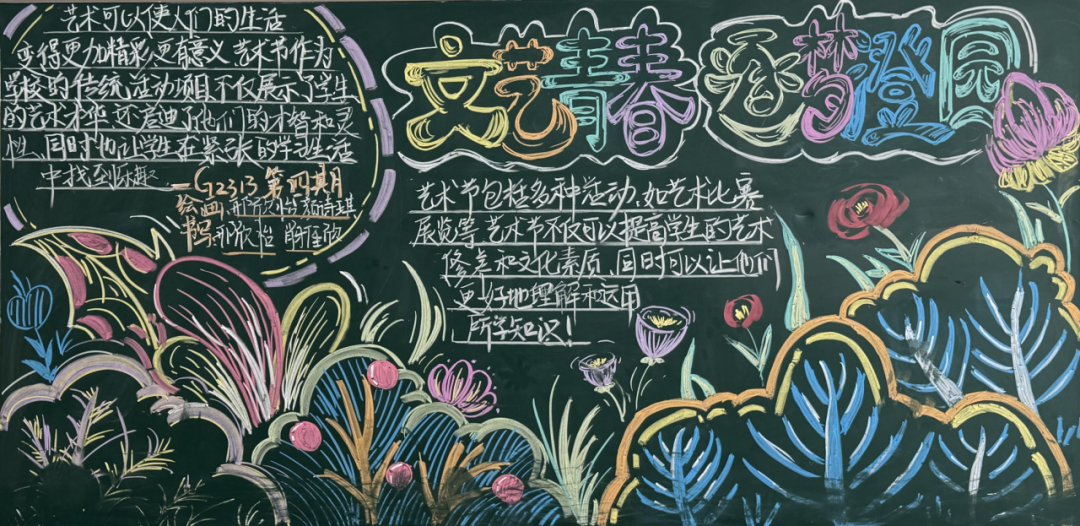 文艺青春 逐梦澄园
艺术可以使人们的生活
变得更加精彩更有意义 艺术节作为
学校的传统活动项目不仅展示了学生
的艺术才华 还启迪了他们的才智和灵
性、同时也让学生在紧张的学习生活
中找到乐趣
—G2313 第四其月
绘画:
书写:邢欣怡
艺术节包括多种活动、如艺术比赛
展览等 艺术节不仅可以提高学生的艺术
修养和文化素质、同时可以让他们
更好地理解和运用
所学知识!